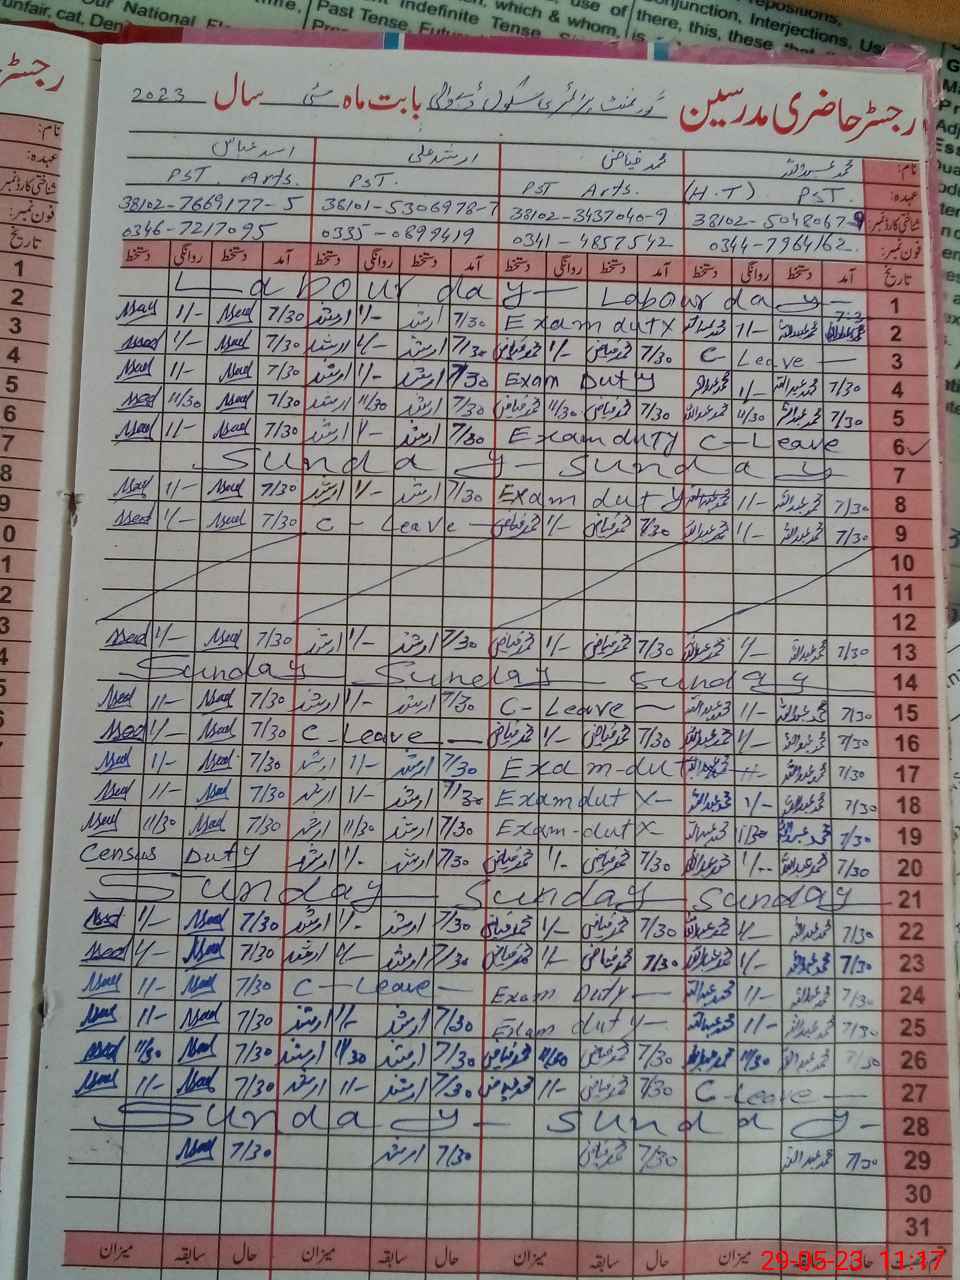 Our National Fl
unfair, cat, Den
Indefinite Tense
which & whom,
use of
there, this, these
onjunction, Interjections, Us
repositions,
Past Tense, Futu
رجسٹر حاضری مدرسین گورنمنٹ پرائمری سکول بابت ماہ مئی سال 2023
نام: محمد عبداللہ محمد فیاض ارشد علی اسد عباس
عہدہ: PST. (H.T) Arts. PST PST. Arts. PST.
شناختی کارڈ نمبر 38102-5048067-9 38102-3437040-9 38101-5306978-7 38102-7669177-5
فون نمبر: 0344-7964162. 0341-4857542 0335-0899419 0346-7217095
تاریخ آمد دستخط روانگی دستخط آمد دستخط روانگی دستخط آمد دستخط روانگی دستخط آمد دستخط روانگی دستخط
1 Labour day- Labour day-
2 محمد عبداللہ 1/- محمد عبداللہ Exam duty 7/30 ارشد 1/- ارشد 7/30 Asad 1/- Asad
3 C-Leave 7/30 محمد فیاض 1/- محمد فیاض 7/30 ارشد 1/- ارشد 7/30 Asad 1/- Asad
4 7/30 محمد عبداللہ 1/- محمد عبداللہ Exam Duty 7/30 ارشد 1/- ارشد 7/30 Asad 1/- Asad
5 7/30 محمد عبداللہ 11/30 محمد عبداللہ 7/30 محمد فیاض 11/30 محمد فیاض 7/30 ارشد 11/30 ارشد 7/30 Asad 11/30 Asad
6 C-Leave Exam duty 7/30 ارشد 1/- ارشد 7/30 Asad 1/- Asad
7 Sunday- Sunday
8 7/30 محمد عبداللہ 1/- محمد عبداللہ Exam duty 7/30 ارشد 1/- ارشد 7/30 Asad 1/- Asad
9 7/30 محمد عبداللہ 1/- محمد عبداللہ 7/30 محمد فیاض 1/- محمد فیاض C-Leave- 7/30 Asad 1/- Asad
10
11
12
13 7/30 محمد عبداللہ 1/- محمد عبداللہ 7/30 محمد فیاض 1/- محمد فیاض 7/30 ارشد 1/- ارشد 7/30 Asad 1/- Asad
14 Sunday Sunday Sunday
15 7/30 محمد عبداللہ 1/- محمد عبداللہ C-Leave- 7/30 ارشد 1/- ارشد 7/30 Asad 1/- Asad
16 7/30 محمد عبداللہ 1/- محمد عبداللہ 7/30 محمد فیاض 1/- محمد فیاض C-Leave- 7/30 Asad 1/- Asad
17 7/30 محمد عبداللہ 1/- محمد عبداللہ Exam-duty 7/30 ارشد 1/- ارشد 7/30 Asad 1/- Asad
18 7/30 محمد عبداللہ 1/- محمد عبداللہ Exam duty- 7/30 ارشد 1/- ارشد 7/30 Asad 1/- Asad
19 7/30 محمد عبداللہ 11/30 محمد عبداللہ Exam-duty 7/30 ارشد 11/30 ارشد 7/30 Asad 11/30 Asad
20 7/30 محمد عبداللہ 1/- محمد عبداللہ 7/30 محمد فیاض 1/- محمد فیاض 7/30 ارشد 1/- ارشد Census Duty
21 Sunday- Sunday Sunday
22 7/30 محمد عبداللہ 1/- محمد عبداللہ 7/30 محمد فیاض 1/- محمد فیاض 7/30 ارشد 1/- ارشد 7/30 Asad 1/- Asad
23 7/30 محمد عبداللہ 1/- محمد عبداللہ 7/30 محمد فیاض 1/- محمد فیاض 7/30 ارشد 1/- ارشد 7/30 Asad 1/- Asad
24 7/30 محمد عبداللہ 1/- محمد عبداللہ Exam Duty- C-Leave- 7/30 Asad 1/- Asad
25 7/30 محمد عبداللہ 1/- محمد عبداللہ Exam duty- 7/30 ارشد 1/- ارشد 7/30 Asad 1/- Asad
26 7/30 محمد عبداللہ 11/30 محمد عبداللہ 7/30 محمد فیاض 11/30 محمد فیاض 7/30 ارشد 11/30 ارشد 7/30 Asad 11/30 Asad
27 C-Leave- 7/30 محمد فیاض 1/- محمد فیاض 7/30 ارشد 1/- ارشد 7/30 Asad 1/- Asad
28 Sunday- Sunday-
29 7/30 محمد عبداللہ 7/30 محمد فیاض 7/30 ارشد 7/30 Asad
30
31
حال سابقہ میزان حال سابقہ میزان حال سابقہ میزان حال سابقہ میزان
29-05-23 11:17